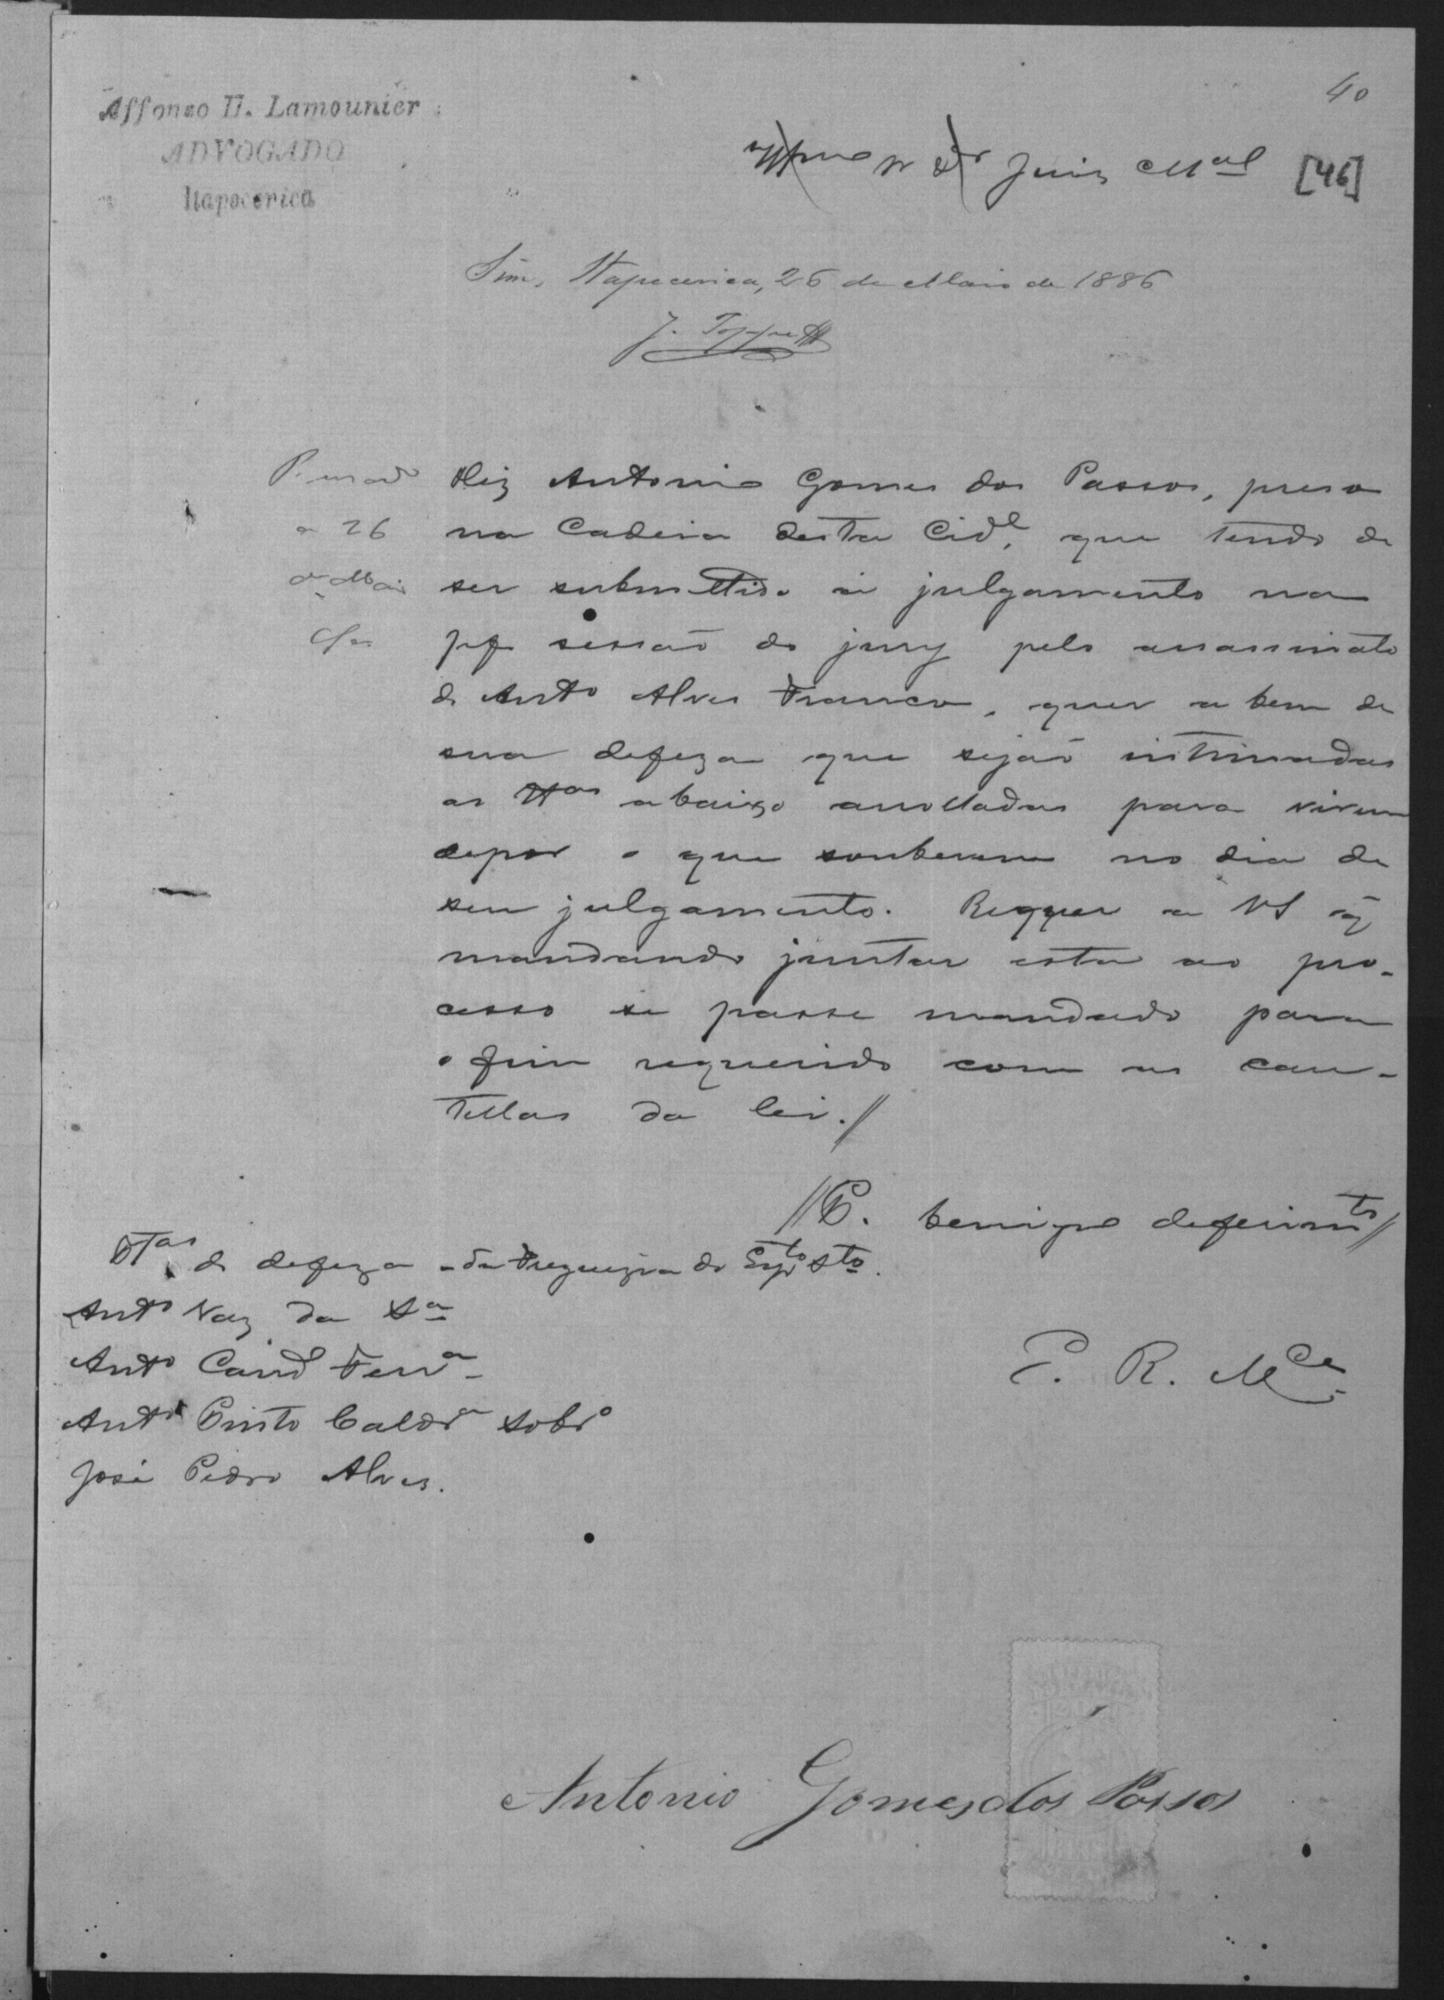 40
Affonso H. Lamounier
ADVOGADO
Itapecerica
Illmo Sr Dr Juiz Mal
[46]
Sim, Itapecerica, 26 de Maio de 1886
Diz Antonio Gomes dos Passos, preso
a 26
na Cadeia desta Cide, que tendo de
de Maio
ser submettido a julgamento na
sessão do jury pelo assassinato
de Anto Alves Franco, quer a bem de
sua defeza que sejão intimadas
as ttas abaixo arrolladas para virem
depor o que souberem no dia de
seu julgamento. Requer a VS q
mandando juntar esta ao pro-
cesso se passe mandado para
o fim requerido com as cau-
tellas da lei.//
//P. benigno deferimto//
Ttas de defeza da Freguezia do Espto Sto.
Anto Vaz da Sa
E. R. Mce
Anto Cand Ferra
Anto Pinto Caldra Sobro
José Pedro Alves.
Antonio Gomes dos Passos